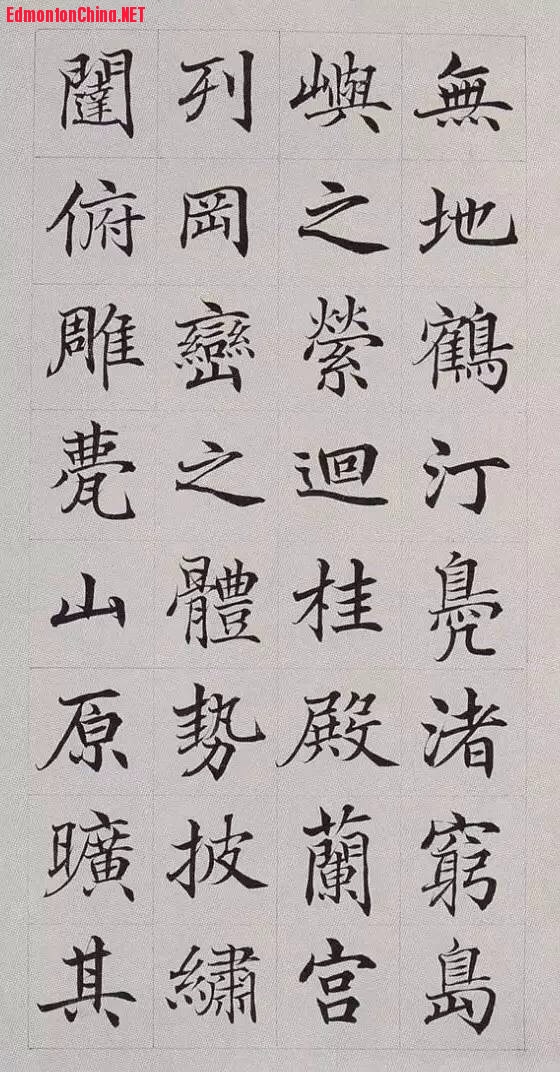 EdmontonChina.NET
無地鶴汀鳧渚窮島
嶼之縈迴桂殿蘭宮
列岡巒之體勢披繡
闥俯雕甍山原曠其